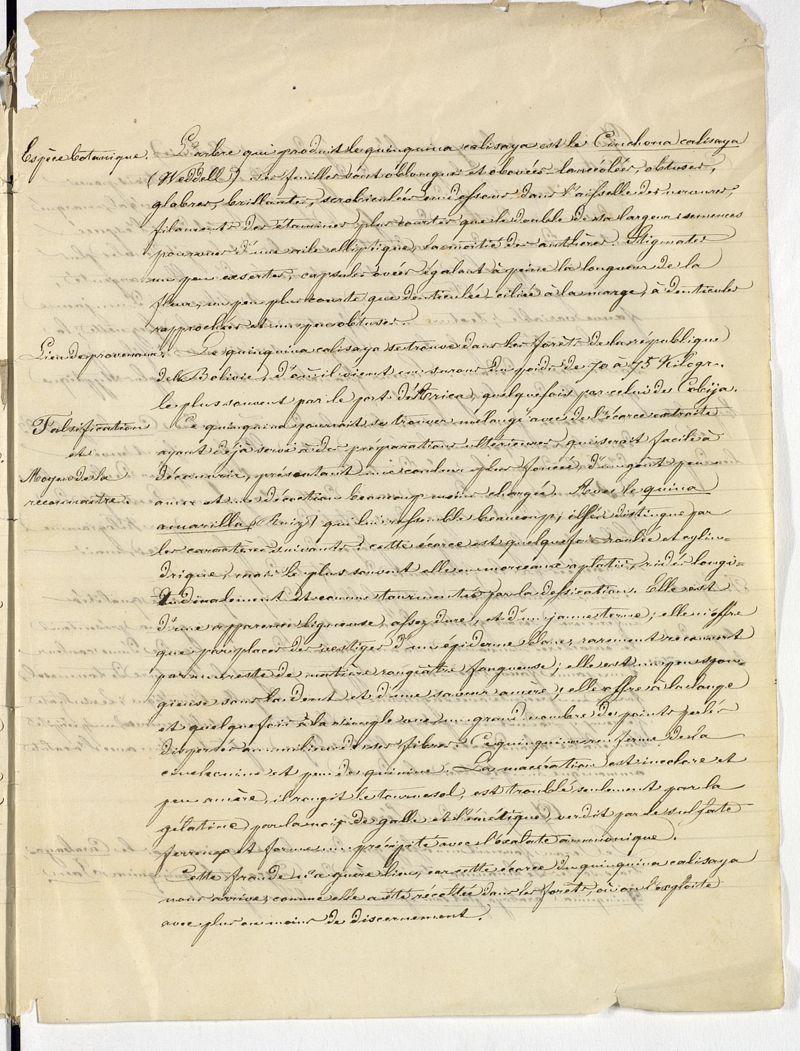 Espèce botanique. L'arbre qui produit le quinquina calisaya est le Cinchona calisaya
(Weddell). Ses feuilles sont oblongues et obovées lancéolées, obtuses,
glabres, brillantes, scrobiculées en dessous dans l'aisselle des nervures,
filaments des étamines plus courtes que le double de sa largeur semences
pourvues d'une aile elliptique, la moitié des anthères. Stigmates
un peu exsertes, capsules ovées égalant à peine la longueur de la
fleur, un peu plus courte que denticulée ciliée à la marge, à denticules
rapprochées et un peu obtuses.
Lieu de provenance. Le quinquina calisaya se trouve dans les forêts de la république
de Bolivie, d'où il vient en surons du poids de 70 à 75 Kilogr.
le plus souvent par le port d'Arica, quelquefois par celui de Cobija.
Falsification
et
Moyen de la
reconnaitre.
Ce quinquina pourrait se trouver mélangé avec de l'écorce extraite
ayant déjà servi à des préparations ultérieures, qui serait facile à
découvrir, présentant une couleur plus foncée, d'un goût peu
amer et une décoction beaucoup moins chargée. Avec le quina
amarilla (Ruiz) qui lui ressemble beaucoup, distingue par
les caractères suivants: cette écorce est quelquefois roulée et cylin-
drique, mais le plus souvent elle en morceaux aplatis, ridés longi-
tudinalement et comme tourmentés par la dessication. Elle est
d'une apparence ligneuse, assez dure, et d'un jaune terne; elle n'offre
que par places des vestiges d'un épiderme blanc, rarement recouvert
par un reste de matière rougeâtre fongueuse; elle est un peu spon-
gieuse sous la dent et d'une saveur amère; elle offre à la
et quelquefois à la simple vue un grand nombre de points
disperses au milieu de ses fibres. Ce quinquina renferme de la
cinchonine et peu de quinine. La macération est incolore et
peu amère, il rougit le tournesol, est troublé seulement par la
gélatine, par la noix de galle et l'émétique, verdit par le sulfate
ferreux et forme un précipité avec l'oxalate ammonique.
Cette fraude n'a guère lieu, car cette écorce du quinquina calisaya
nous arrive, comme elle a été récoltée dans les forêts où on l'exploite
avec plus ou moins de discernement.